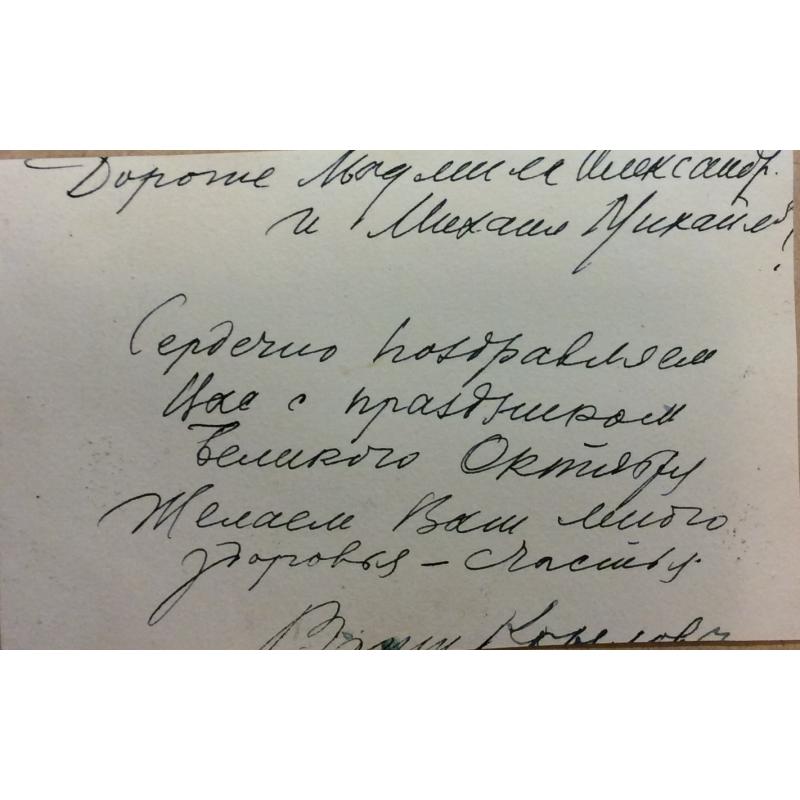 Дорогие Людмила Александр.
и Михаил Михайл.!
Сердечно поздравляем
Вас с праздником
Великого Октября
Желаем Вам много
здоровья – счастья.
Ваши